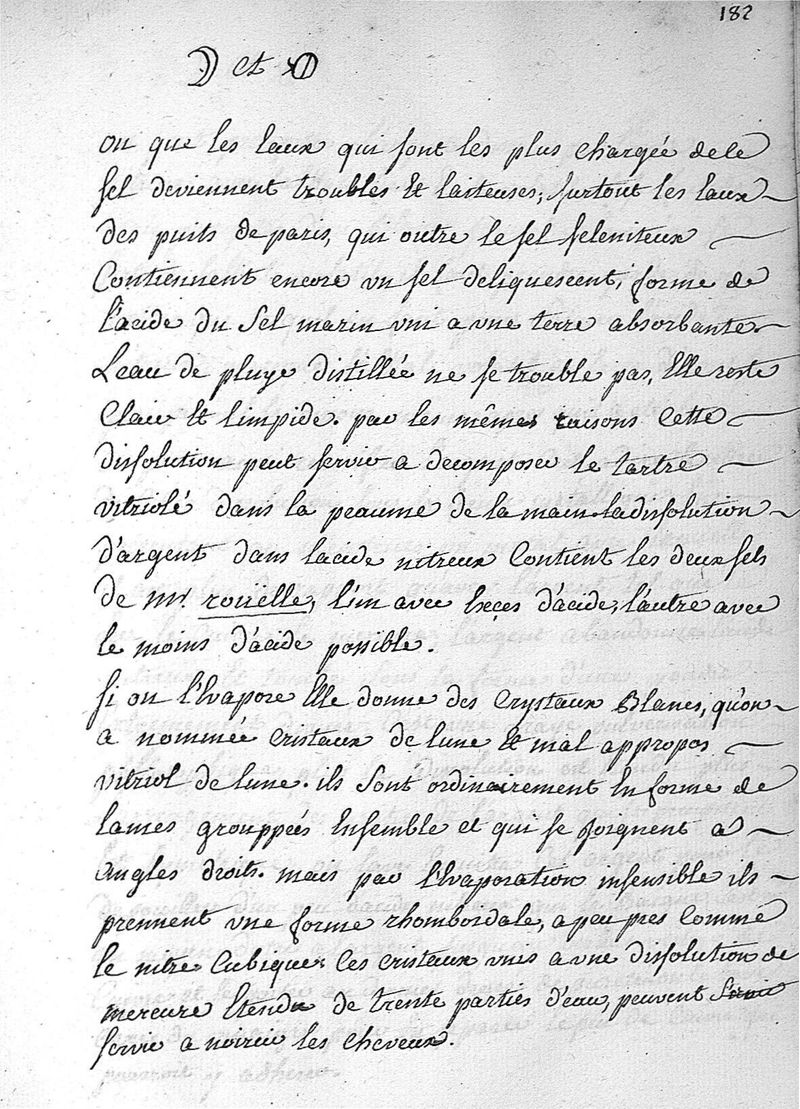 182
et
ou que les Eaux qui sont les plus chargée de ce
sel deviennent troubles et laiteuses, surtout les Eaux
des puits de paris, qui outre le sel seleniteux
Contiennent encore un sel deliquescent, forme de
l'acide du Sel marin uni a une terre absorbante.
L'eau de pluye distillée ne se trouble pas, Elle reste
Claire et limpide. par les mêmes raisons Cette
dissolution peut servir a decomposer le tartre
vitriolé dans la peaume de la main. la dissolution
d'argent dans lacide nitreux Contient les deux sels
de Mr. rouëlle, l'un avec Exçes d'acide, l'autre avec
le moins d'acide possible.
si on l'Evapore Elle donne des Crystaux Blancs, qu'on
a nommée cristaux de lune et mal appropos
vitriol de lune. ils sont ordinairement En forme de
lames grouppées Ensemble et qui se joignent a
Angles droits. mais par l'Evaporation insensible ils
prennent une forme rhomboïdale, a peu pres Comme
le nitre Cubique. Ces cristaux unis a une dissolution de
mercure Etendu de trente parties d'eau, peuvent
servir a noircir les Cheveux.